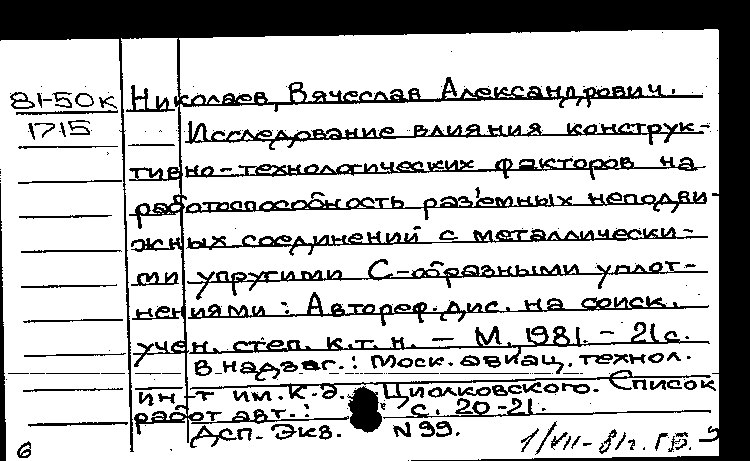 81-50к Николаев, Вячеслав Александрович.
1715 Исследование влияния конструк-
тивно-технологических факторов на
работоспособность раз'емных неподви-
жных соединений с металлически-
ми упругими С-образными уплот-
нениями : Автореф. дис. на соиск.
учен. степ. к.т.н. — М., 1981. - 21с.
В надзаг.: Моск. авиац. технол.
ин-т им. К.Э. Циолковского. Список
работ авт.: с. 20-21.
Дсп. Экз. N 99.
1/VII-81г. ГБ.
6